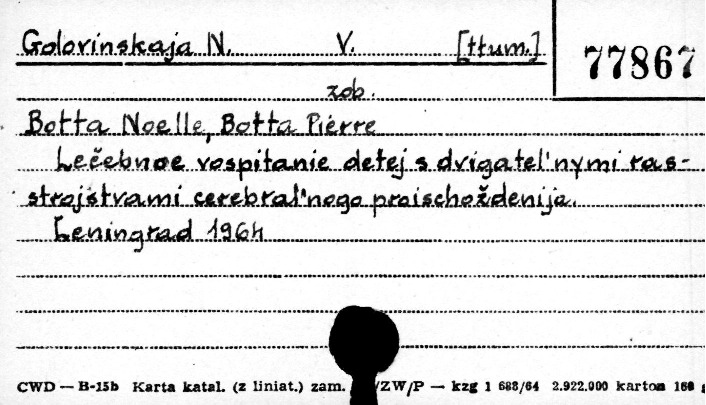 Golovinskaja N. V. [tłum.]
77867
zob.
Botta Noelle, Botta Pierre
Lečebnoe vospitanie detej s dvigatel'nymi ras-
strojstvami cerebral'nogo proischoždenija.
Leningrad 1964
CWD — B-15b Karta katal. (z liniat.) zam. /ZW/P — kzg 1 688/64 2.922.000 karton 160 g